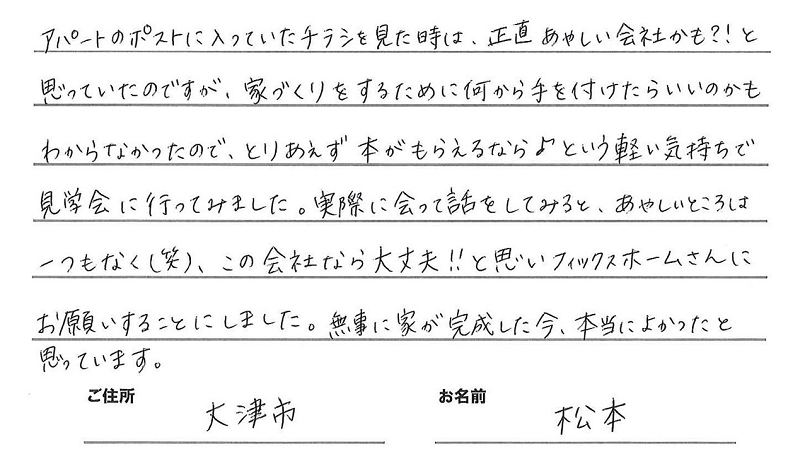 アパートのポストに入っていたチラシを見た時は、正直あやしい会社かも?!と
思っていたのですが、家づくりをするために何から手を付けたらいいのかも
わからなかったので、とりあえず本がもらえるなら♪という軽い気持ちで
見学会に行ってみました。実際に会って話をしてみると、あやしいところは
一つもなく(笑)、この会社なら大丈夫!!と思いフィックスホームさんに
お願いすることにしました。無事に家が完成した今、本当によかったと
思っています。
ご住所 大津市 お名前 松本